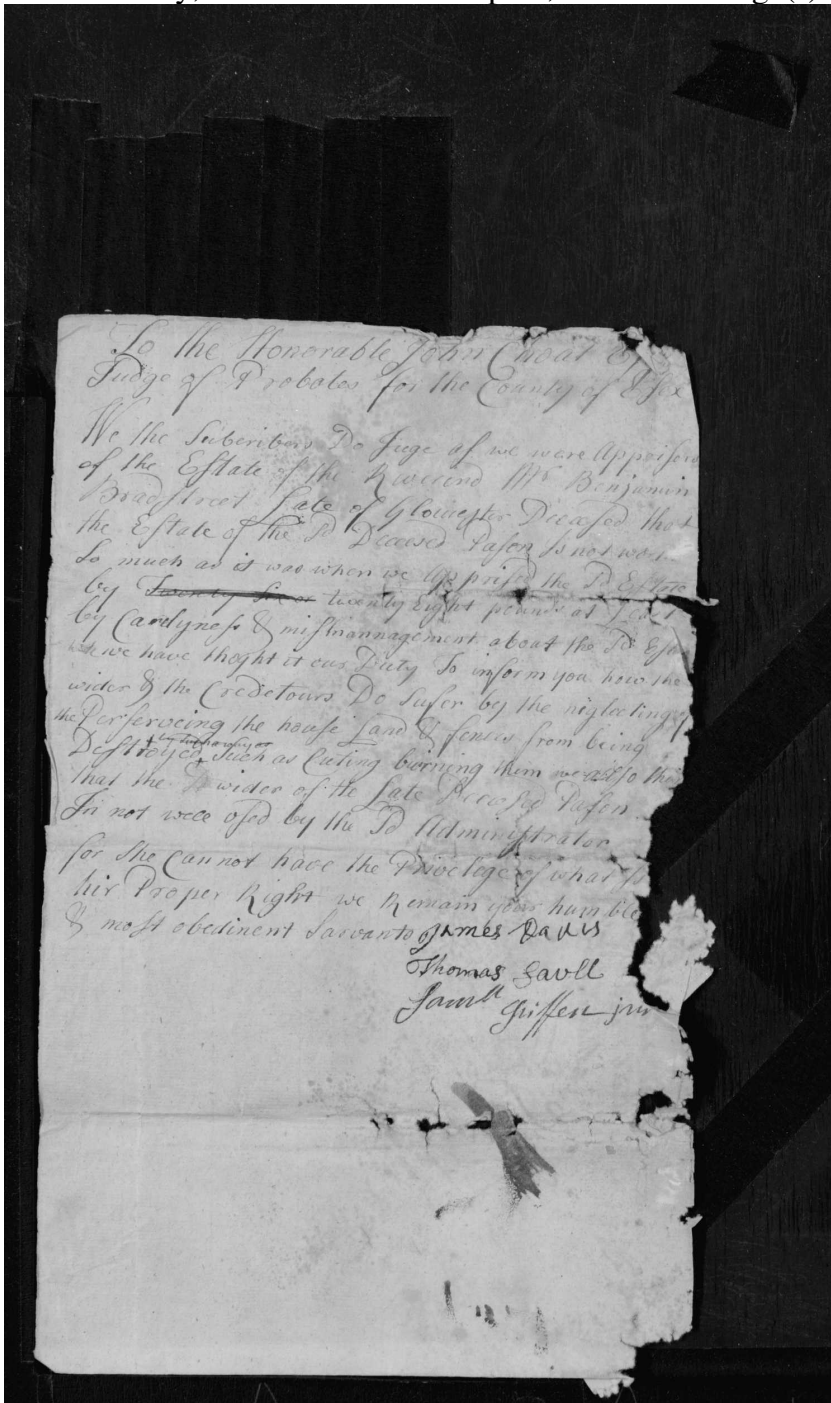 To the Honorable John Choat Esqr
Judge of Probates for the County of Essex
We the Subcribers Do Juge as we were Apprisers
of the Estate of the Reverend Mr Benjamin
Bradstreet Late of Glouester Deceased that
the Estate of the sd Deceesed Pason Is not
So much as it was when we Apprised the sd Estate
by Twenty Six or twenty Eight pounds at Least
by Carelyness & mismannagement about the sd
we have thoght it our Duty To inform you how the
wider & the Credetours Do Sufer by the neglecting of
the Perserveing the house Land & fenses from being
Destroyed Such as Cuting burning them we also
that the sd wider of the Late Deceesed Pason
Iss not well used by the sd Administrator
for She Cannot have the Privelege of what Is
hir Proper Right we Remain your humble
& most obedinent Sarvants James Davis
Thomas Savll
Samll Griffen jnr